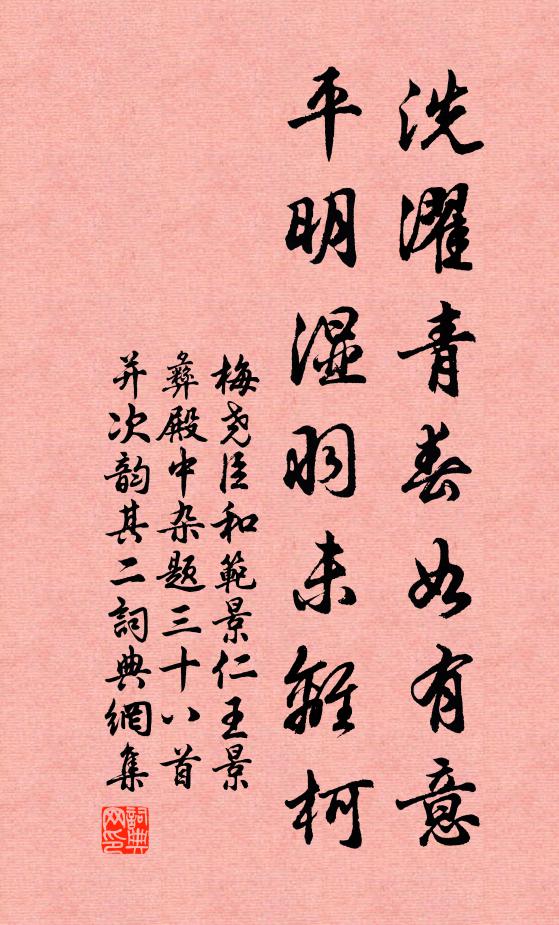 洗濯青春如有意
平明湿羽未離柯
梅尧臣和範景仁王景
彝殿中杂题三十八首
并次韵其二詞典網集
詞典
网印